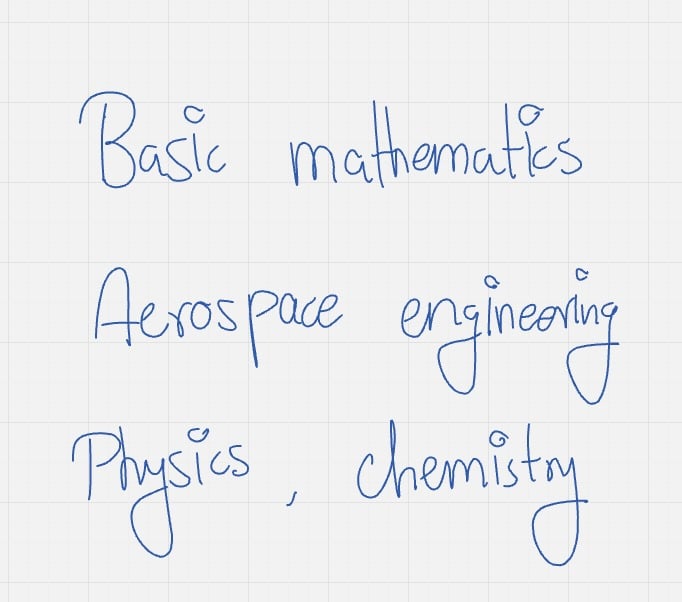 Basic mathematics
Aerospace engineering
Physics, chemistry